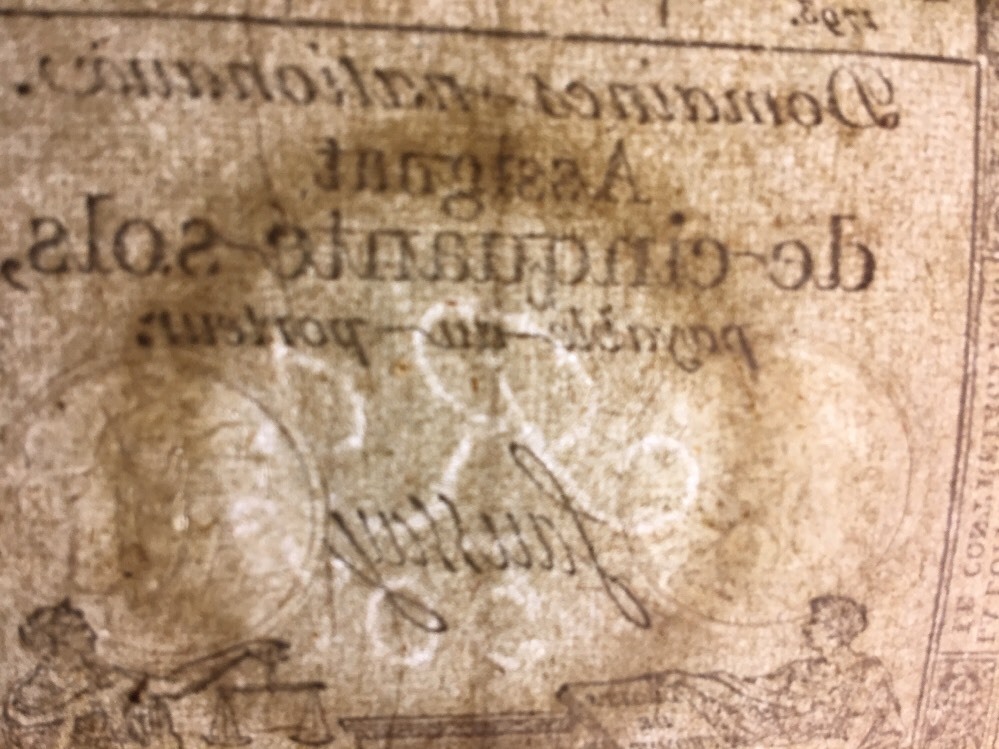 1793.
Domaines nationaux.
Assignat
de cinquante sols,
payable au porteur.